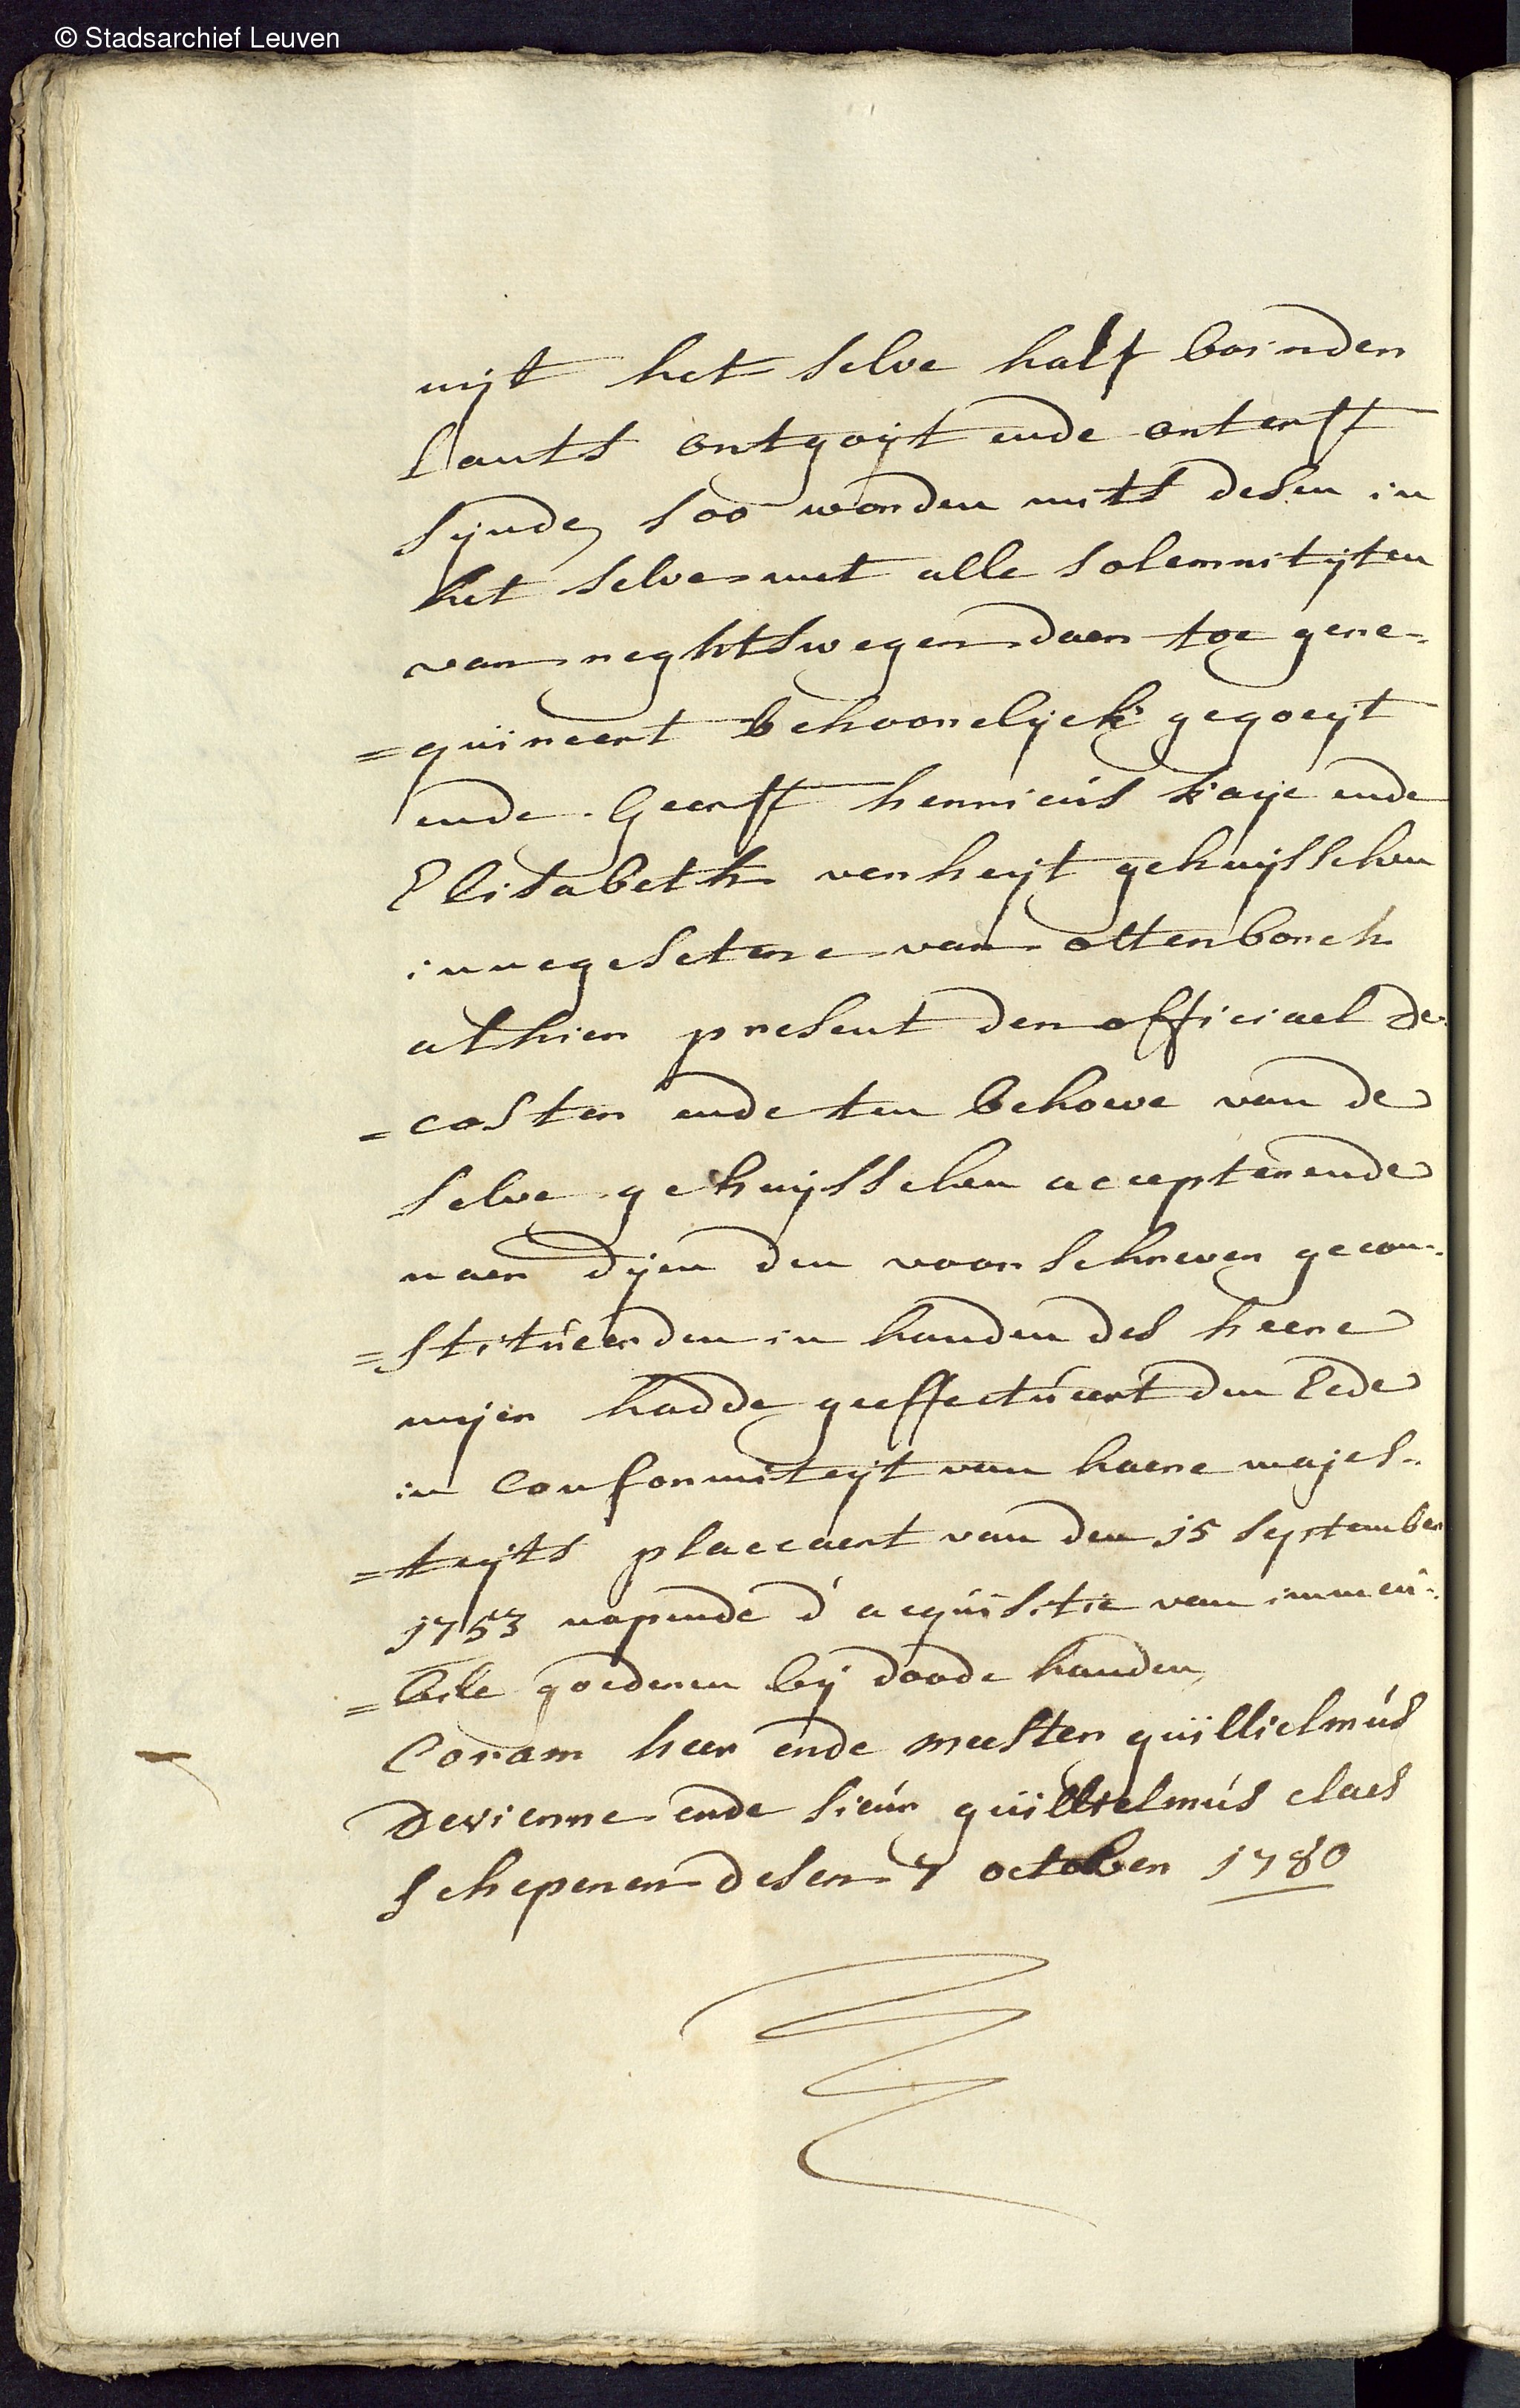 © Stadsarchief Leuven
uijt het selve half boinder
lants ontgoijt ende onterft
sijnde, soo worden mits desen in
het selve met alle solemnitijten
van reghtswegen daer toe gere-
=quireert behoorelijck gegoeijt
ende geerft henricus kaije ende
Elisabeth verheijt gehuijsschen
innegesetene van ottenborch
alhier present den officiael de-
=coster ende ten behoeve van de
selve gehuijsschen accepterende
naer dijen den voorschreven gecon-
=stitueerden in handen des heere
meijer hadde geeffectueert den Eede
in conformiteijt van haere majes-
=teijts placcaert van den 15 september
1753 nopende d'acquisitie van immeu-
=bile goederen bij doode handen,
Coram heer ende meester guillielmus
devienne ende sieur guillielmus claes
schepenen desen 7 october 1780